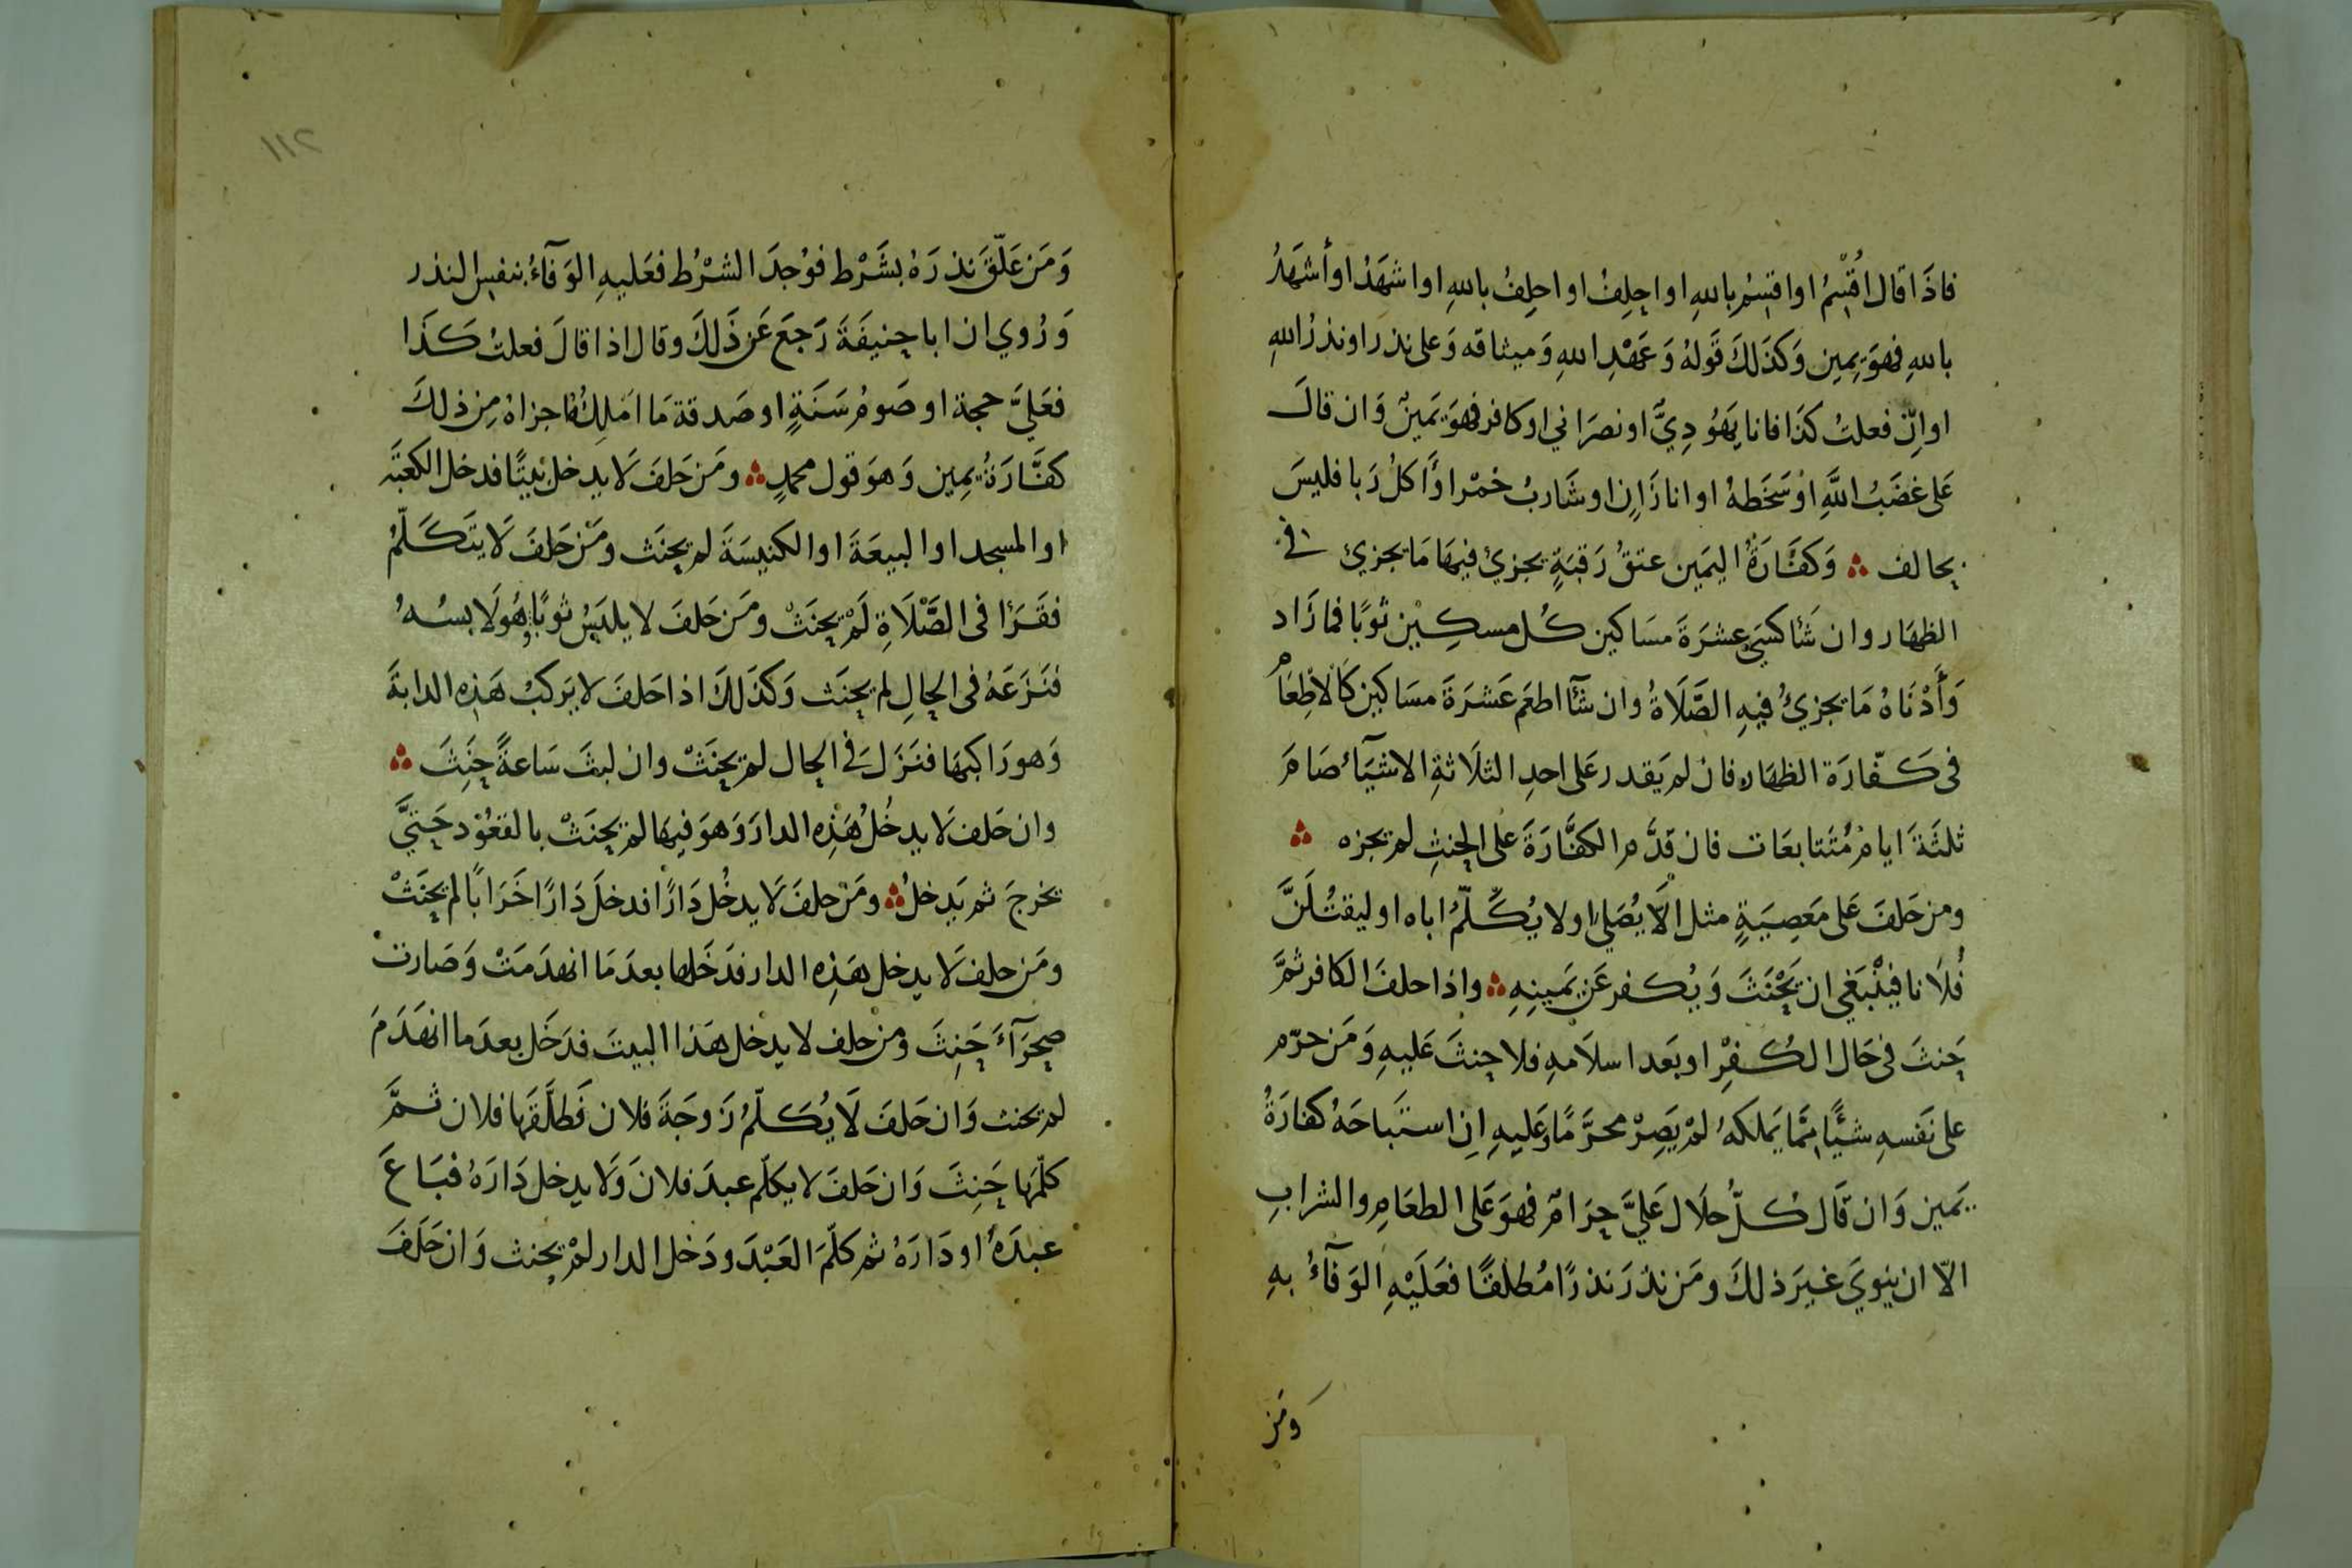 فاذَا قَال اُقْسِمُ او اقسِمُ باللهِ او احِلِفُ او احلِفُ باللهِ او اشهَدُ او أَشهَدُ
باللهِ فهوَ يمِين وَكذَلكَ قَولهُ وَعَهْدِ اللهِ وَميثاقه وَعلى نذر او نذرُ اللهِ
او اِنْ فعلتُ كذَا فانا يَهُودِيٌّ او نصرَاني او كافر فهوَ يَمينٌ وَان قالَ
عَلى غضَبُ اللَّهِ اوْ سَخَطهُ او انا زَانٍ او شَاربُ خمْر او أَاكلُ رَبا فليسَ
بحالف وَكفَّارَةُ اليَمين عتقُ رَقبَةٍ يجزئ فيهَا مَا يجزئ فى
الظهَار وان شَا كسَى عشرَةَ مسَاكين كُل مسكِين ثوبًا فما زَاد
وَأَدْنَاهُ مَا يجزئُ فيهِ الصَّلَاةُ وان شَآ اطعَم عَشرَةَ مسَاكين كَالاطِعَام
فى كَفّارَة الظهَار فان لم يَقدر عَلى احدِ الثلَاثةِ الاشيَآئ صَامَ
ثلثَةَ ايامٍ مُتَتابعَات فان قدَّم الكفَّارَةَ على الحِنثِ لم تجزه
ومن حَلفَ عَلى مَعصِيَةٍ مثل الّاَ يُصَلي او لا يُكَلّمُ اباه او ليقتُلَنَّ
فُلَانا فيَنْبَغي ان يَحْنَثَ وَيُكفر عَن يَمينِهِ واذا حلفَ الكافر ثمَّ
حَنثَ فى حَال الكُفرِ او بَعد اسلَامهِ فلا حِنثَ عَليهِ وَمَن حرّم
على نَفسهِ شيًّا مِمَّا يَملكهُ لمْ يَصِرْ محرَّمًا وَعَليهِ اِنِ استَبَاحَهُ كفارَةُ
يَمين وَان قَال كُلّ حلَال عَليَّ حرَامٌ فهوَ عَلى الطعَامِ والشرابِ
الّا ان ينويَ غيرَ ذلكَ ومَن نذرَ نذرًا مُطلقًا فعَلَيْهِ الوَفَآءُ بهِ
ومَن
١١٢
وَمَن عَلّقَ نذرَهُ بشَرْط فوُجدَ الشرْطُ فعَليهِ الوَفَآءُ بنفسِ النذر
وَرُوي ان ابا حنيفَةَ رَجعَ عَن ذَلكَ وقال اذا قالَ فعلتُ كَذَا
فعَليَّ حجة او صَومُ سَنَةٍ او صَدقة مَا امْلِكُهُ اجزاهُ مِن ذلكَ
كفَّارَةُ يمِين وَهوَ قول محمدٍ ومَن حَلفَ لَا يدخلُ بيتًا فدخل الكعبَةَ
او المسجد او البيعَةَ او الكنيسَةَ لم يحنَث ومَنْ حَلفَ لَا يَتَكَلّمُ
فقَرَأ فى الصَّلَاةِ لَمْ يحنَثْ ومَن حَلفَ لا يلبَسُ ثوبًا وهُوَ لَابسُهُ
فنَزَعَهُ فى الحالِ لم يحنَث وَكذَلكَ اذا حَلفَ لا يَركبُ هَذِه الدابةَ
وَهو رَاكبهَا فنَزَلَ في الحال لم يحنَثْ وان لبثَ سَاعةً حنِثَ
وان حَلف لَا يدخُلُ هَذِه الدارَ وَهوَ فيهَا لم يحنَثْ بالقعُوْد حَتيَّ
يخرجَ ثم يَدخلُ ومَنْ حلفَ لَا يدخُل دَارًا فدخلَ دَارًا خَرَابًا لم يحنَثْ
ومَن حلف لَا يدخل هَذِه الدار فدَخَلها بعدَ مَا انهدَمَتْ وَصَارتْ
صحرَآءَ حَنِثَ ومن حلف لا يدخل هَذا البيتَ فدَخَل بعدَ ما انهَدَمَ
لم يحنث وَان حَلفَ لَا يُكَلّمُ زَوجَةَ فلان فَطلَّقَها فلان ثمَّ
كلّمَها حَنِثَ وَان حَلفَ لا يكَلّم عبدَ فلانَ وَلَا يدخل دَارَهُ فبَاعَ
عبدَهُ او دَارَهُ ثم كلّمَ العَبْدَ ودَخل الدار لمْ يحنث وَان حَلَفَ